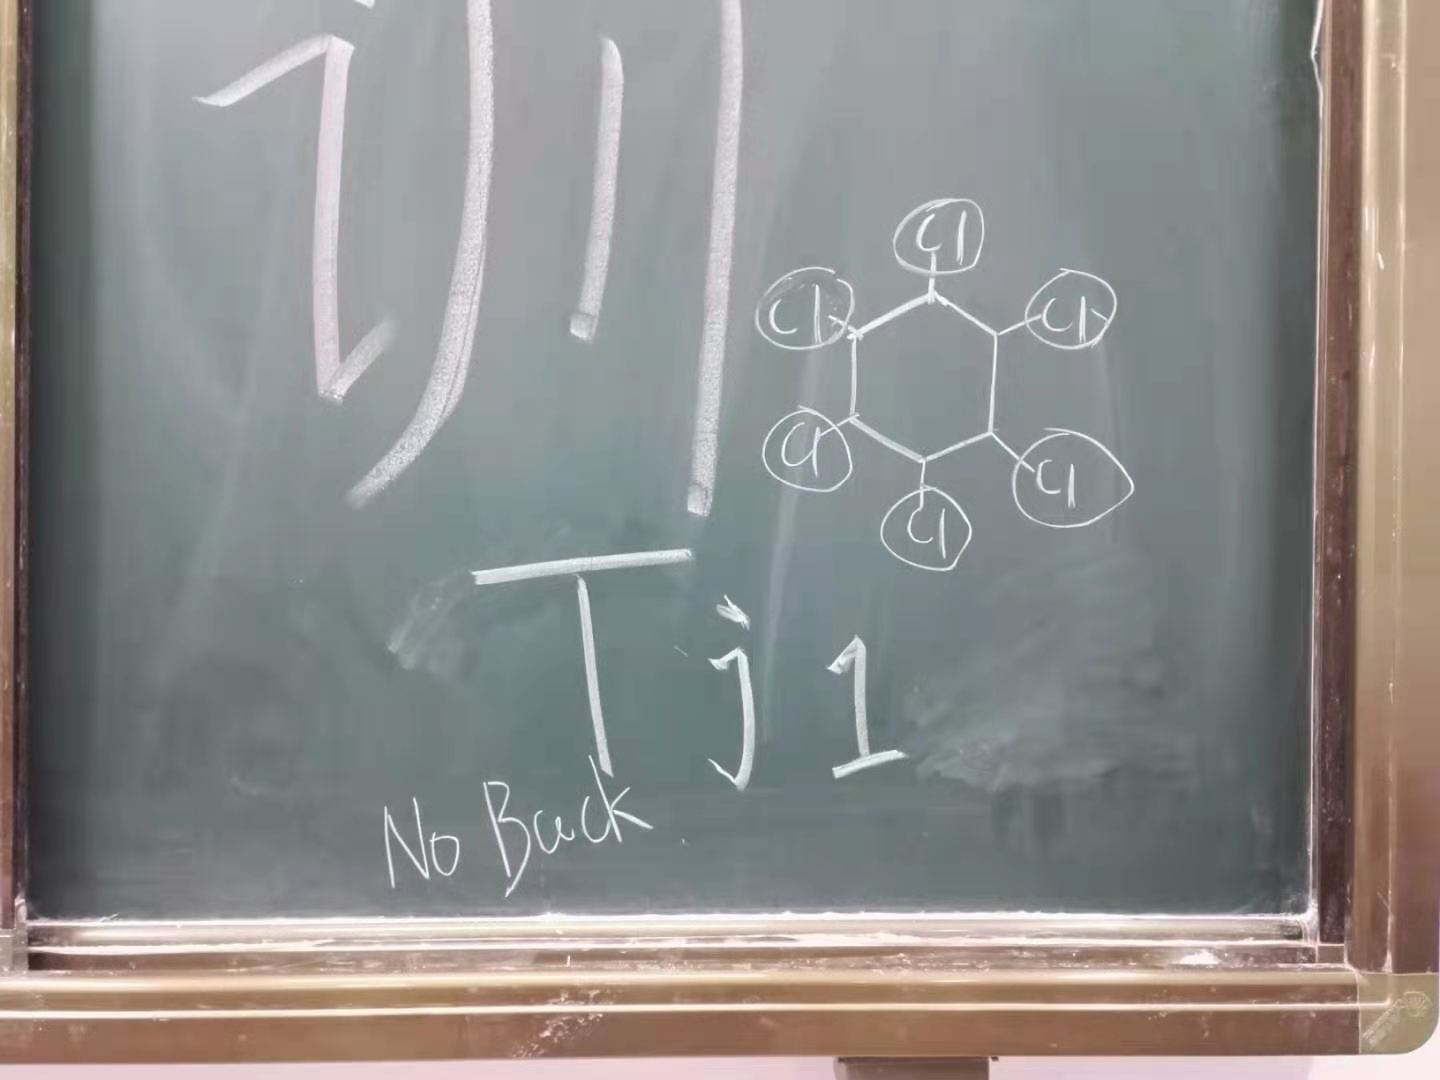 训
Cl
Cl Cl
Cl Cl
Cl
Tj1
No Back